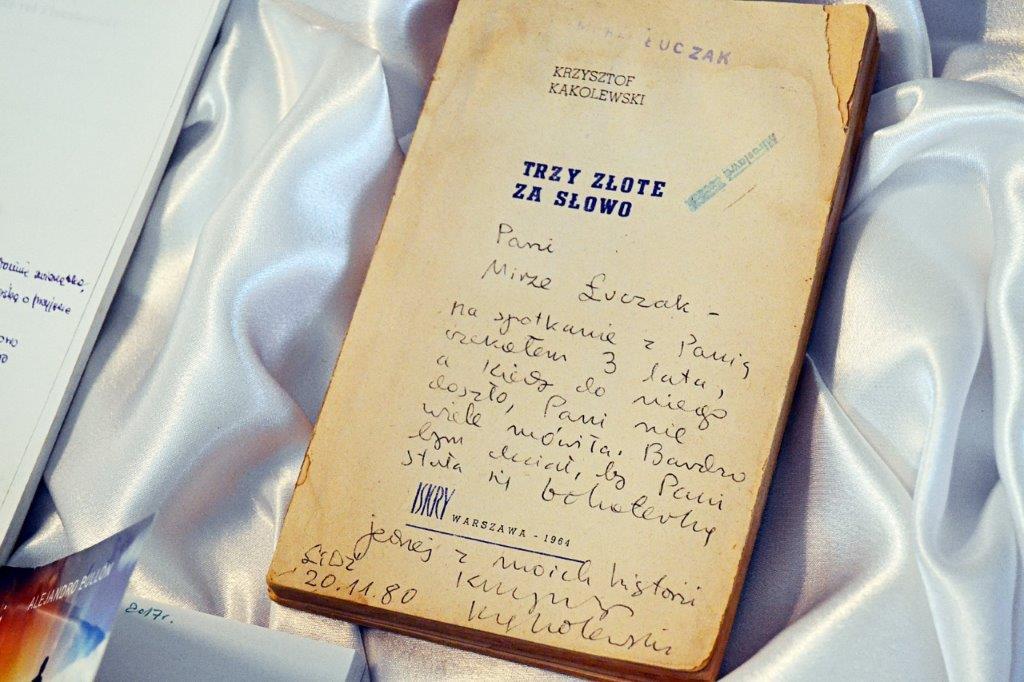 ŁUCZAK
KRZYSZTOF
KĄKOLEWSKI
TRZY ZŁOTE
ZA SŁOWO
Pani
Mirze Łuczak –
na spotkanie z Panią
czekałem 3 lata,
a kiedy do niego
doszło, Pani nie
wiele mówiła. Bardzo
bym chciał, by Pani
stała się bohaterką
ISKRY
WARSZAWA - 1964
jednej z moich historii
Łódź
20.11.80
Krzysztof
Kąkolewski
ALEJANDRO BULLÓN
2017r.